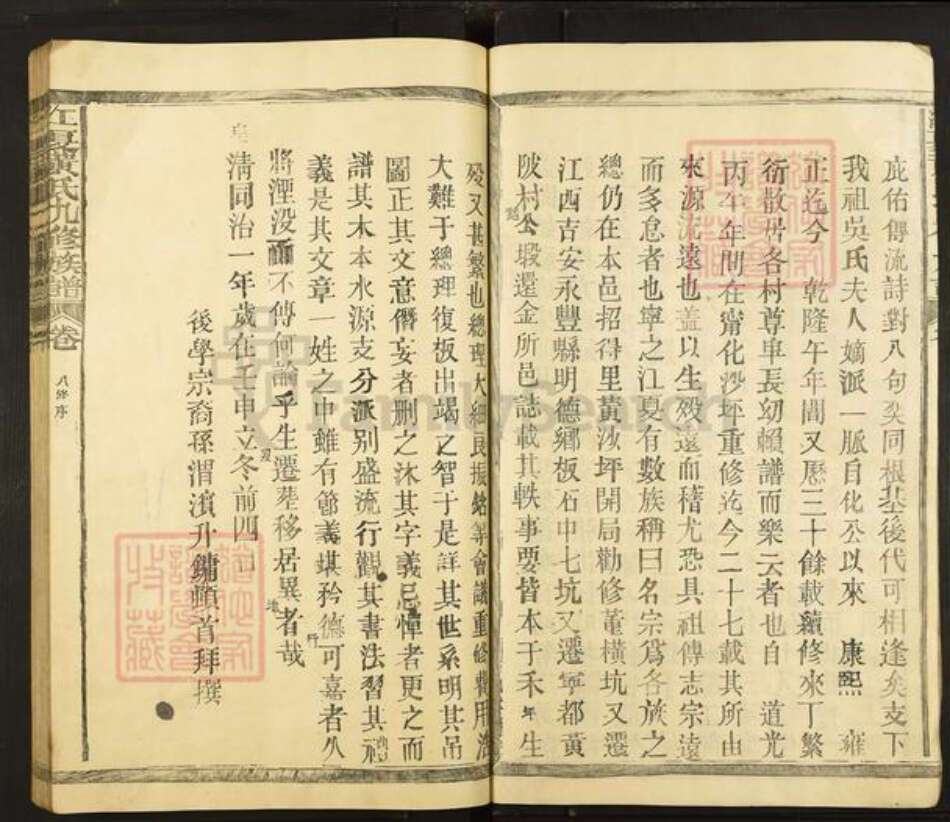 庇佑傳流詩對八句矣同根基後代可相逢矣支下
我祖吳氏夫人嫡派一脈自化公以來 康熙 雍
正迄今 乾隆午年間又歷三十餘載續修來丁繁
衍散居各村尊卑長幼賴譜而樂云者也自 道光
丙午年間在甯化沙坪重修迄今二十七載其所由
來源流遠也蓋以生歿遠而稽尤恐具祖傳志宗遠
而多怠者也寧之江夏有數族稱曰名宗爲各族之
總仍在本邑招得里黃沙坪開局勸修董橫坑又遷
江西吉安永豐縣明德鄉板石中七坑又遷寧都黃
陂村公塅還金所邑誌載其軼事要皆本于禾年生
歿又甚繁也總理大細民振銘等會議重修費用浩
大難于總理復板出竭之智于是詳其世系明其吊
圖正其文意僭妄者刪之沐其字義忌憚者更之而
譜其木本水源支分派别盛流行觀其書法習其禮
義是其文章一姓之中雖有節義堪矜德行可嘉者久
將湮没而不傳何論乎生遷塟移居異者哉
皇清同治一年歲在壬申立冬前四日
後學宗裔孫渭濱升鏞頓首拜撰
江夏黃氏九修族譜 卷
八修序
FamilySearch